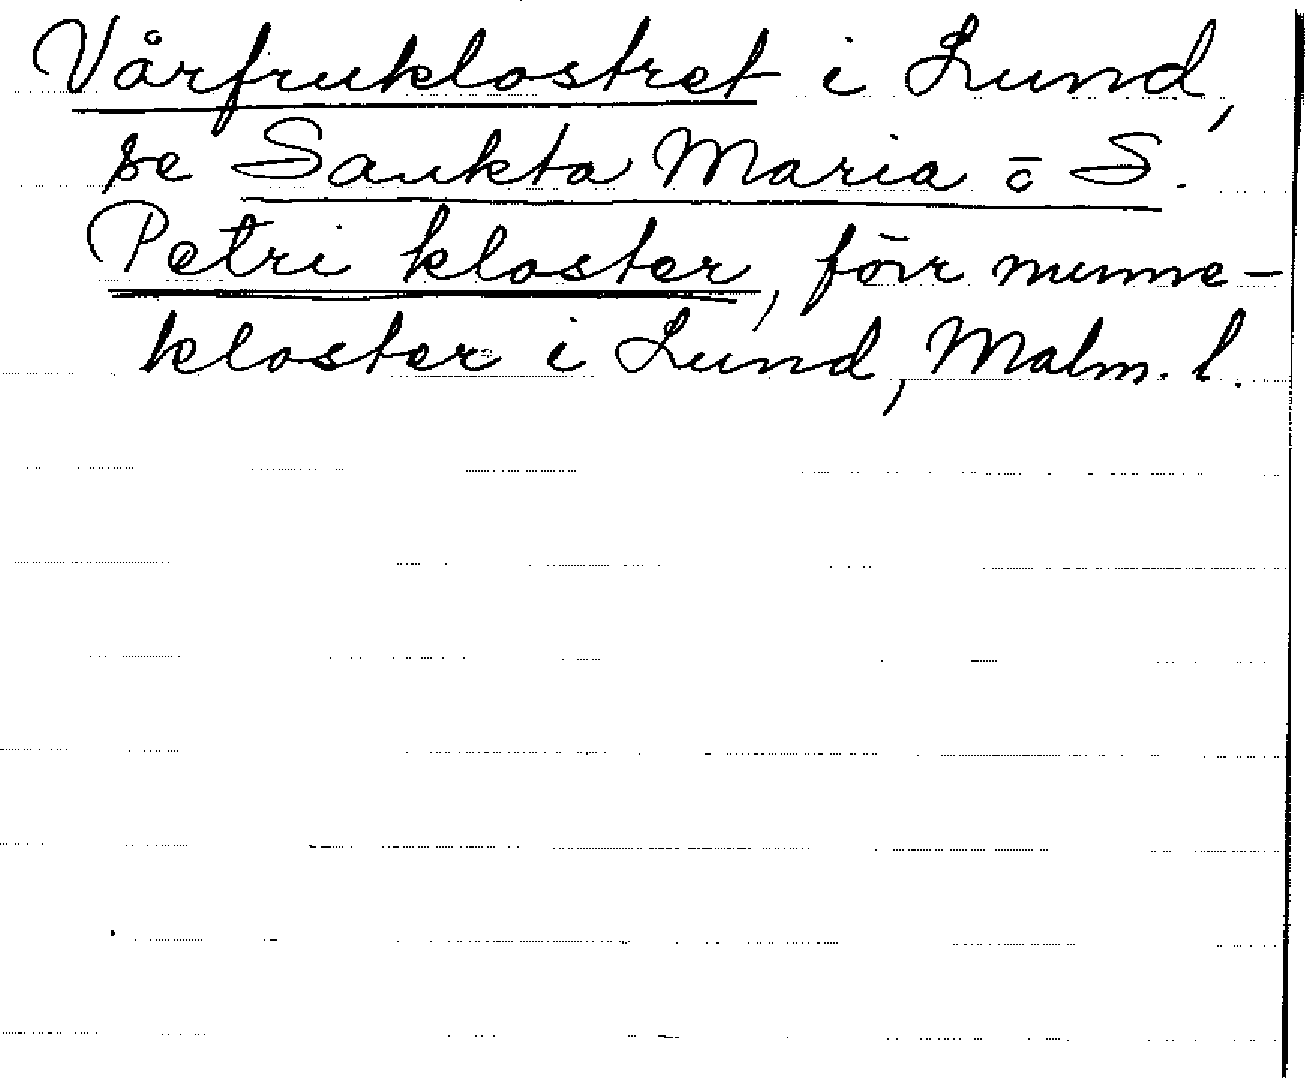 Vårfruklostret i Lund,
se Sankta Maria o S.
Petri kloster, förr nunne-
kloster i Lund, Malm. l.